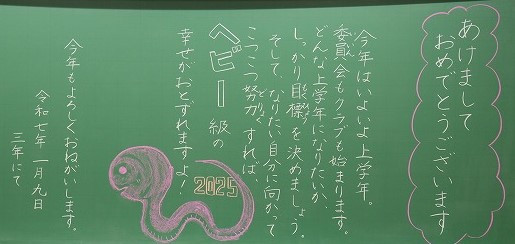 あけまして
おめでとうございます
今年はいよいよ上学年。
委員会もクラブも始まります。
どんな上学年になりたいか、
しっかり目標を決めましょう。
そして、なりたい自分に向かって
こつこつ努力すれば、
ヘビー級の
幸せがおとずれますよ!
2025
今年もよろしくおねがいします。
令和七年 一月九日
三年にて